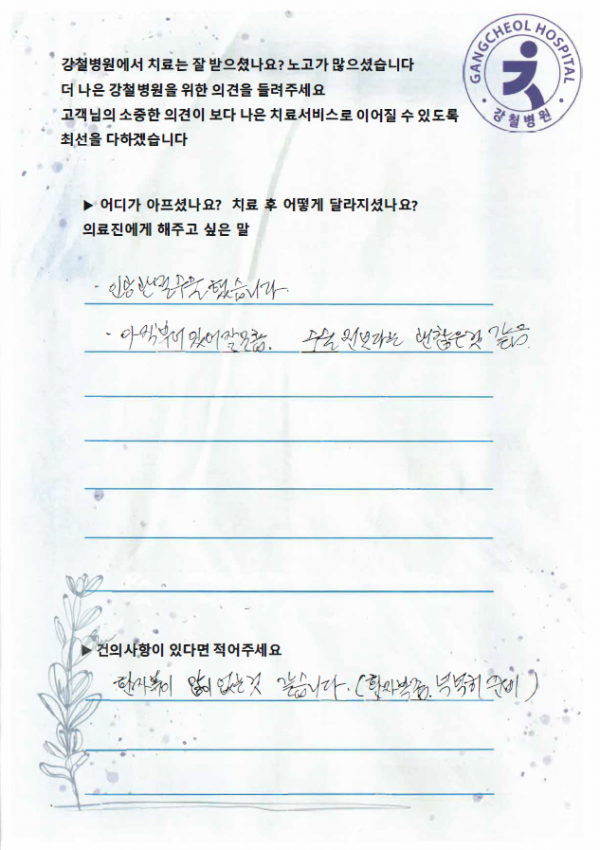 GANGCHEOL HOSPITAL
강철병원
강철병원에서 치료는 잘 받으셨나요? 노고가 많으셨습니다
더 나은 강철병원을 위한 의견을 들려주세요
고객님의 소중한 의견이 보다 나은 치료서비스로 이어질 수 있도록
최선을 다하겠습니다
▶ 어디가 아프셨나요? 치료 후 어떻게 달라지셨나요?
의료진에게 해주고 싶은 말
· 인공관절수술 했습니다.
· 아직 붓기 있어 잘모름. 수술 전보다는 괜찮은것 같음.
▶ 건의사항이 있다면 적어주세요
환자복이 많이 없는것 같습니다. (환자복좀 넉넉히 준비)